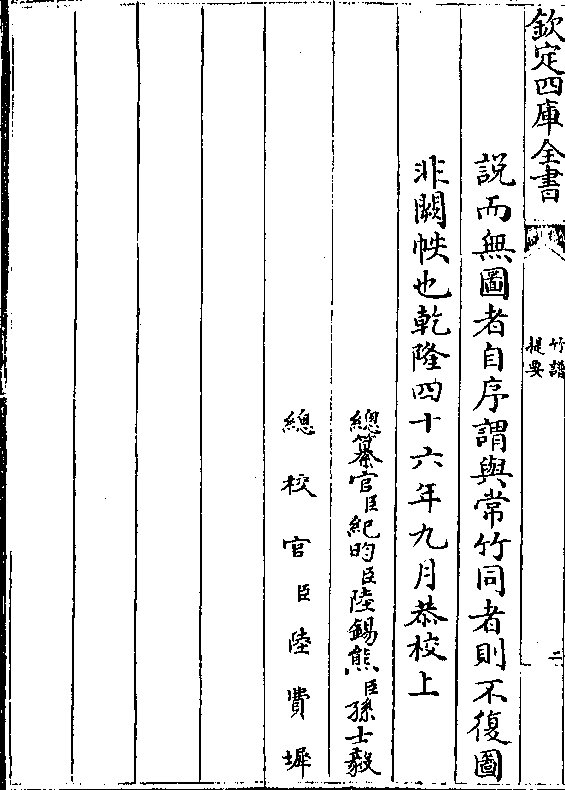 欽定四庫全書
竹譜
提要
二
說而無圖者自序謂與常竹同者則不復圖
非闕帙也乾隆四十六年九月恭校上
總纂官臣紀昀臣陸錫熊臣孫士毅
總校官臣陸費墀